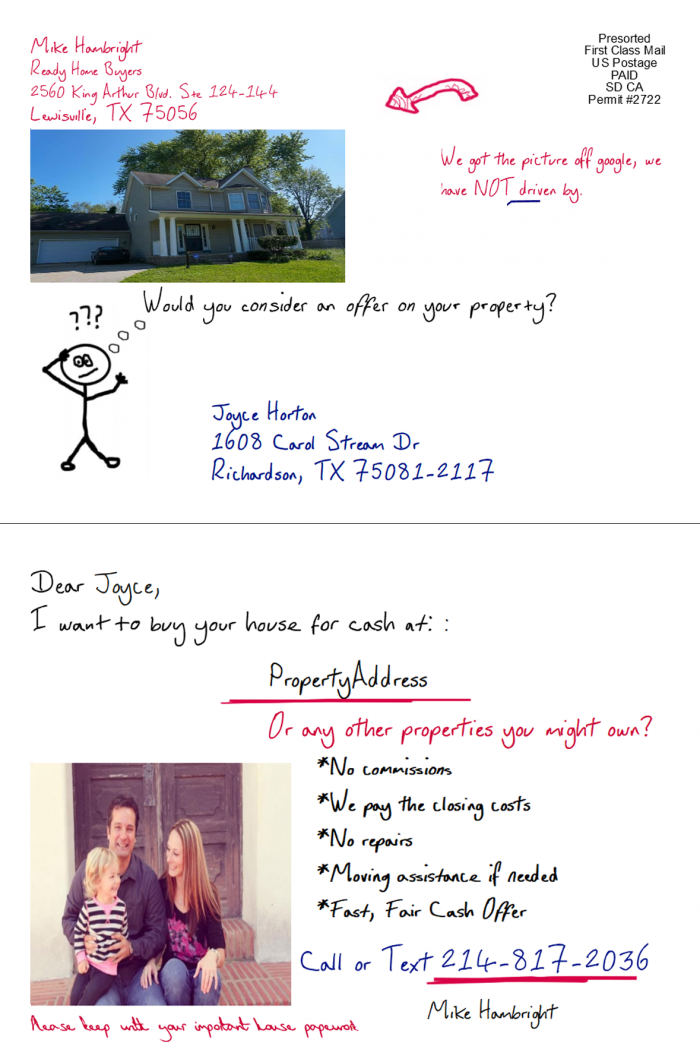 Mike Hambright
Ready Home Buyers
2560 King Arthur Blvd. Ste 124-144
Lewisville, TX 75056
Presorted
First Class Mail
US Postage
PAID
SD CA
Permit #2722
We got the picture off google, we
have NOT driven by.
???
Would you consider an offer on your property?
Joyce Horton
1608 Carol Stream Dr
Richardson, TX 75081-2117
Dear Joyce,
I want to buy your house for cash at: :
PropertyAddress
Or any other properties you might own?
*No commissions
*We pay the closing costs
*No repairs
*Moving assistance if needed
*Fast, Fair Cash Offer
Call or Text 214-817-2036
Mike Hambright
Please keep with your important house paperwork